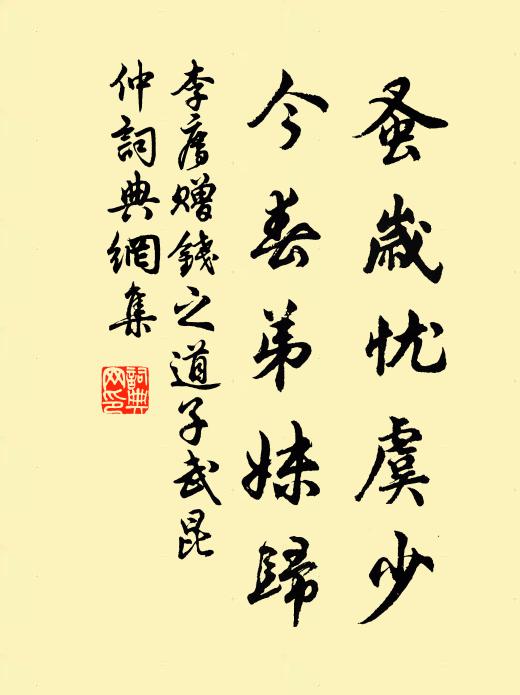 蚤歲忧虞少
今春弟妹歸
李廌赠錢之道子武昆
仲詞典網集
詞典网印